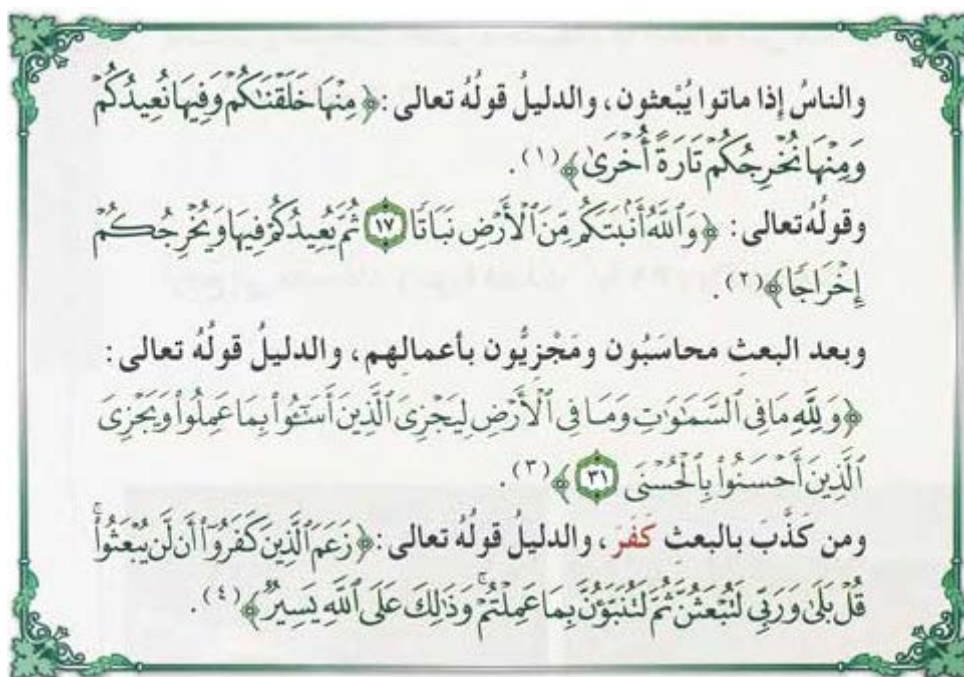 والناسُ إذا ماتوا يُبْعثون، والدليلُ قولُهُ تعالى: ﴿مِنْهَا خَلَقْنَٰكُمْ وَفِيهَا نُعِيدُكُمْ
وَمِنْهَا نُخْرِجُكُمْ تَارَةً أُخْرَىٰ﴾(١).
وقولُهُ تعالى: ﴿وَٱللَّهُ أَنۢبَتَكُم مِّنَ ٱلْأَرْضِ نَبَاتًا ١٧ ثُمَّ يُعِيدُكُمْ فِيهَا وَيُخْرِجُكُمْ
إِخْرَاجًا﴾(٢).
وبعد البعثِ محاسَبُون ومَجْزِيُّون بأعمالِهم، والدليلُ قولُهُ تعالى:
﴿وَلِلَّهِ مَا فِى ٱلسَّمَٰوَٰتِ وَمَا فِى ٱلْأَرْضِ لِيَجْزِىَ ٱلَّذِينَ أَسَٰٓـُٔوا۟ بِمَا عَمِلُوا۟ وَيَجْزِىَ
ٱلَّذِينَ أَحْسَنُوا۟ بِٱلْحُسْنَى ٣١﴾(٣).
ومن كَذَّبَ بالبعثِ كَفَرَ، والدليلُ قولُهُ تعالى: ﴿زَعَمَ ٱلَّذِينَ كَفَرُوٓا۟ أَن لَّن يُبْعَثُوا۟ ۚ
قُلْ بَلَىٰ وَرَبِّى لَتُبْعَثُنَّ ثُمَّ لَتُنَبَّؤُنَّ بِمَا عَمِلْتُمْ ۚ وَذَٰلِكَ عَلَى ٱللَّهِ يَسِيرٌ﴾(٤).